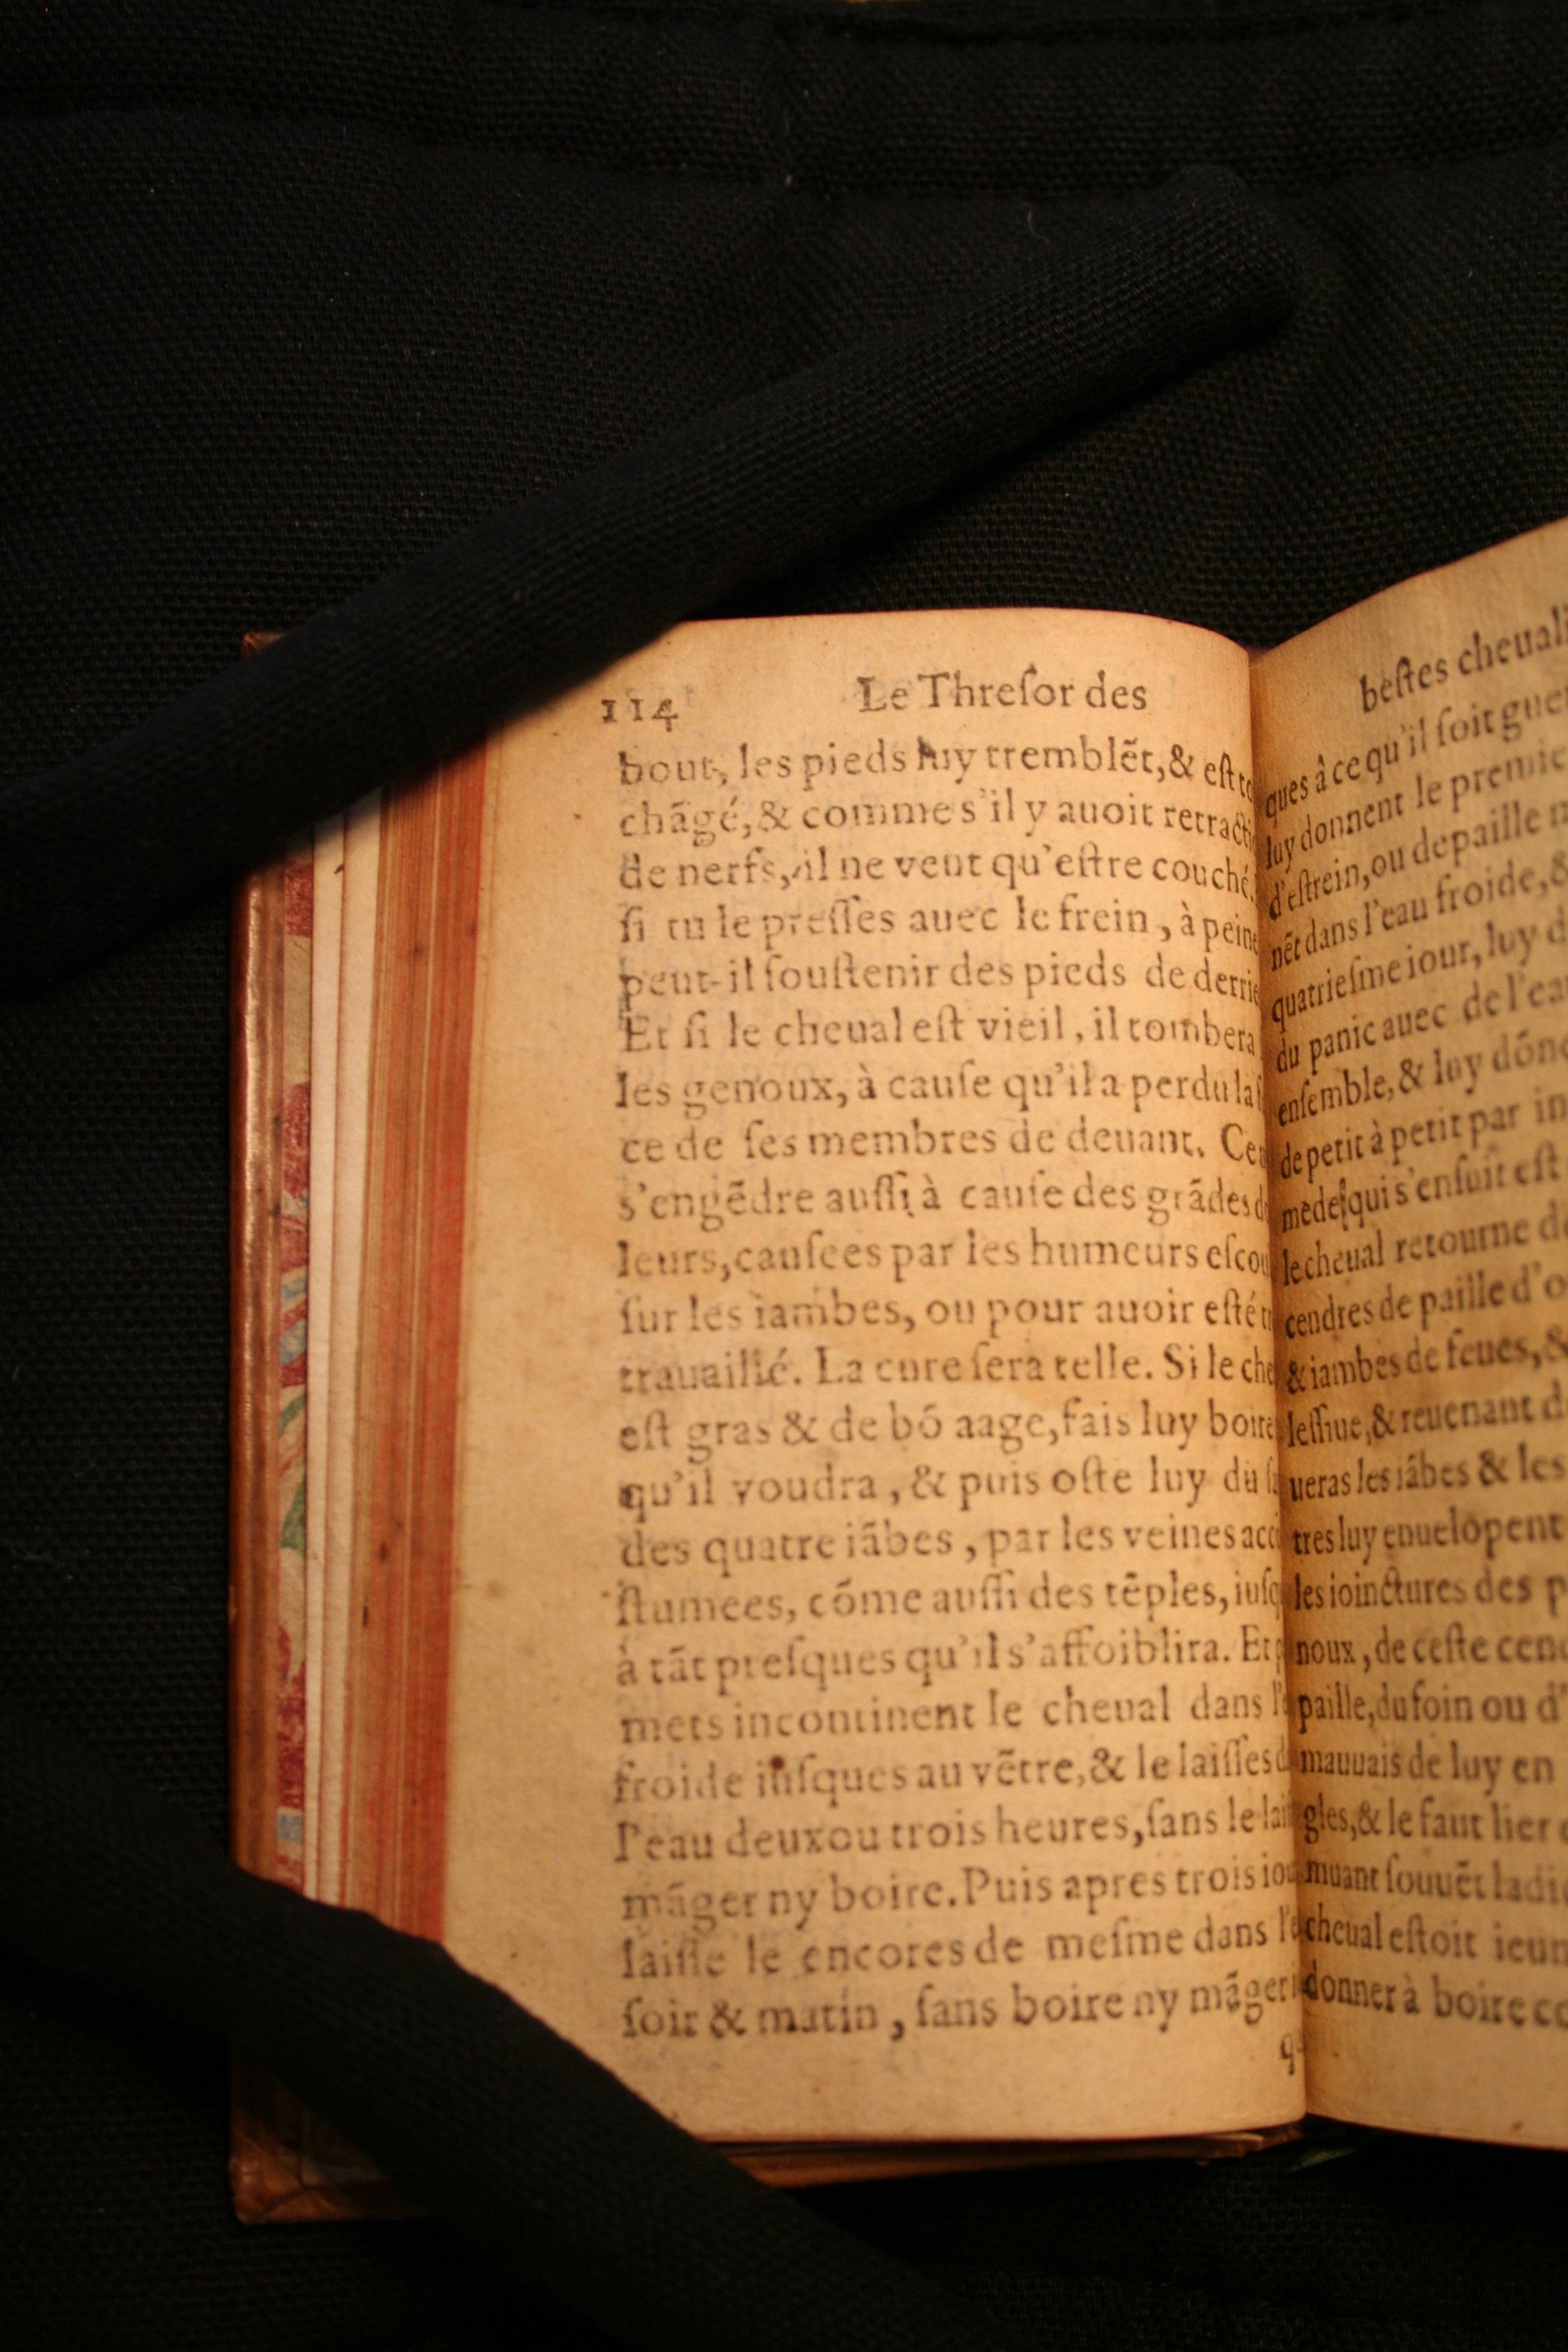 114 Le Threſor des
bout, les pieds luy tremblẽt, & eſt
chãgé, & comme s'il y auoit
de nerfs, il ne veut qu'eſtre couché,
ſi tu le preſſes auec le frein, à
peut-il ſouſtenir des pieds de
Et ſi le cheual eſt vieil, il tombera
les genoux, à cauſe qu'il a perdu la
ce de ſes membres de deuant.
s'engẽdre auſſi à cauſe des grãdes
leurs, cauſees par les humeurs
ſur les iambes, ou pour auoir eſté
trauaillé. La cure ſera telle. Si le
eſt gras & de bõ aage, fais luy boire
qu'il voudra, & puis oſte luy du
des quatre iãbes, par les veines
ſtumees, cõme auſſi des tẽples,
à tãt preſques qu'il s'affoiblira. Et
mets incontinent le cheual dans
froide iuſques au vẽtre, & le laiſſes
l'eau deux ou trois heures, ſans le
mãger ny boire. Puis apres trois
laiſſe le encores de meſme dans
ſoir & matin, ſans boire ny mãger
beſtes
ques â ce qu'il ſoit
luy donnent le
d'eſtrein, ou de paille
nẽt dans l'eau froide, &
quatrieſme iour, luy
du panic auec de
enſemble, & luy
de petit à petit par
mede qui s'enſuit eſt
le cheual retourne
cendres de paille
& iambes de feues, &
leſſiue, & reuenant
ueras les iãbes & les
tres luy enuelopent
les ioinctures des
noux, de ceſte
paille, du foin ou
mauuais de luy en
gles, & le faut lier
muant ſouuẽt
cheual eſtoit
donner à boire